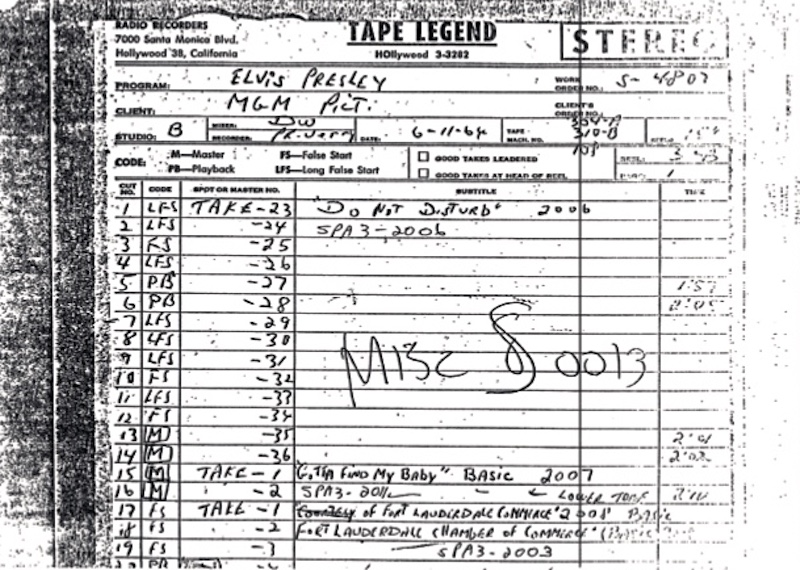 RADIO RECORDERS
7000 Santa Monica Blvd.
Hollywood 38, California
TAPE LEGEND
HOllywood 3-3282
STEREO
PROGRAM: ELVIS PRESLEY WORK ORDER NO.: S-4807
CLIENT: MGM PICT. CLIENT'S ORDER NO.:
STUDIO: B MIXER: DW RECORDER: DATE: 6-11-64 TAPE MACH. NO. 304-A 310-B
CODE: M—Master FS—False Start GOOD TAKES LEADERED REEL:
PB—Playback LFS—Long False Start GOOD TAKES AT HEAD OF REEL 1
CUT NO. CODE SPOT OR MASTER NO. SUBTITLE TIME
1 LFS TAKE-23 "DO NOT DISTURB" 2006
2 LFS -24 SPA3-2006
3 FS -25
4 LFS -26
5 PB -27 1:57
6 PB -28 2:05
7 LFS -29
8 LFS -30
9 LFS -31
10 FS -32
11 LFS -33
12 FS -34
13 (M) -35 2:01
14 (M) -36 2:02
MISC 0013
15 (M) TAKE-1 GOTTA FIND MY BABY" BASIC 2007
16 (M) -2 SPA3-2011 LOWER TONE
17 FS TAKE-1 OF FORT LAUDERDALE COMMERCE "2008" BASIC
18 FS -2 FORT LAUDERDALE CHAMBER OF COMMERCE"
19 FS -3 SPA3-2003
20 PB -4